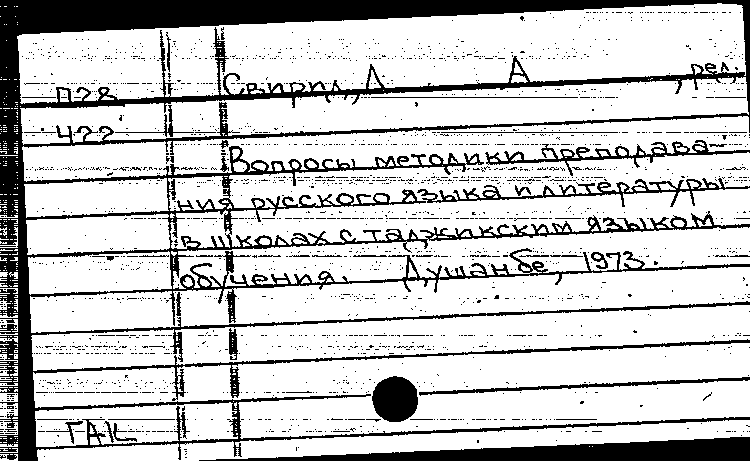 П28 Свирид, Л А , ред.
422
Вопросы методики преподава-
ния русского языка и литературы
в школах с таджикским языком
обучения. Душанбе, 1973.
ГАК